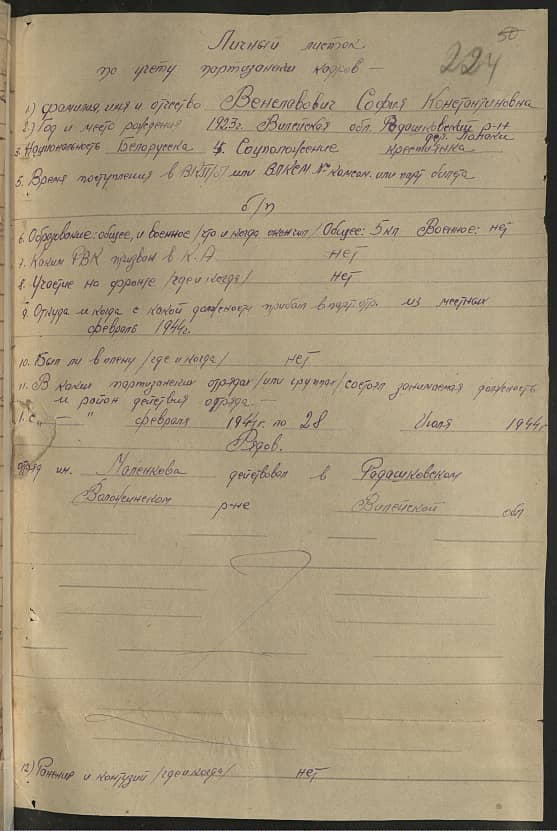 50
224
Личный листок
по учету партизански кадров —
1) фамилия, имя и отчество Венславович София Константиновна
2.) Год и место рождения 1923г. Вилейская обл. Радашковский р-н
дер.
3. Национальность Белоруска 4. Соцположение крестьянка
5. Время поступления в ВКП/б или ВЛКСМ № комсом. или парт билета
б/п
6. Образование: общее, и военное /что и когда окончил/ Общее: 5 кл Военное: нет
7. Каким РВК призван в К.А. нет
8. Участие на фронте /где и когда/ нет
9. Откуда и когда с какой должности прибыл в парт.отр. из местных
февраль 1944г.
10. Был ли в плену /где и когда/ нет
11. В каких партизански отрядах /или группах/ состоял занимаемая должность
и район действия отряда. —
1. с „ — " февраля 1944г. по 28 Июля 1944г
Рядов.
отряд им. Маленкова действовал в Радашковском
Воложинском р-не Вилейской обл
12) Ранения и контузий /где и когда/ нет